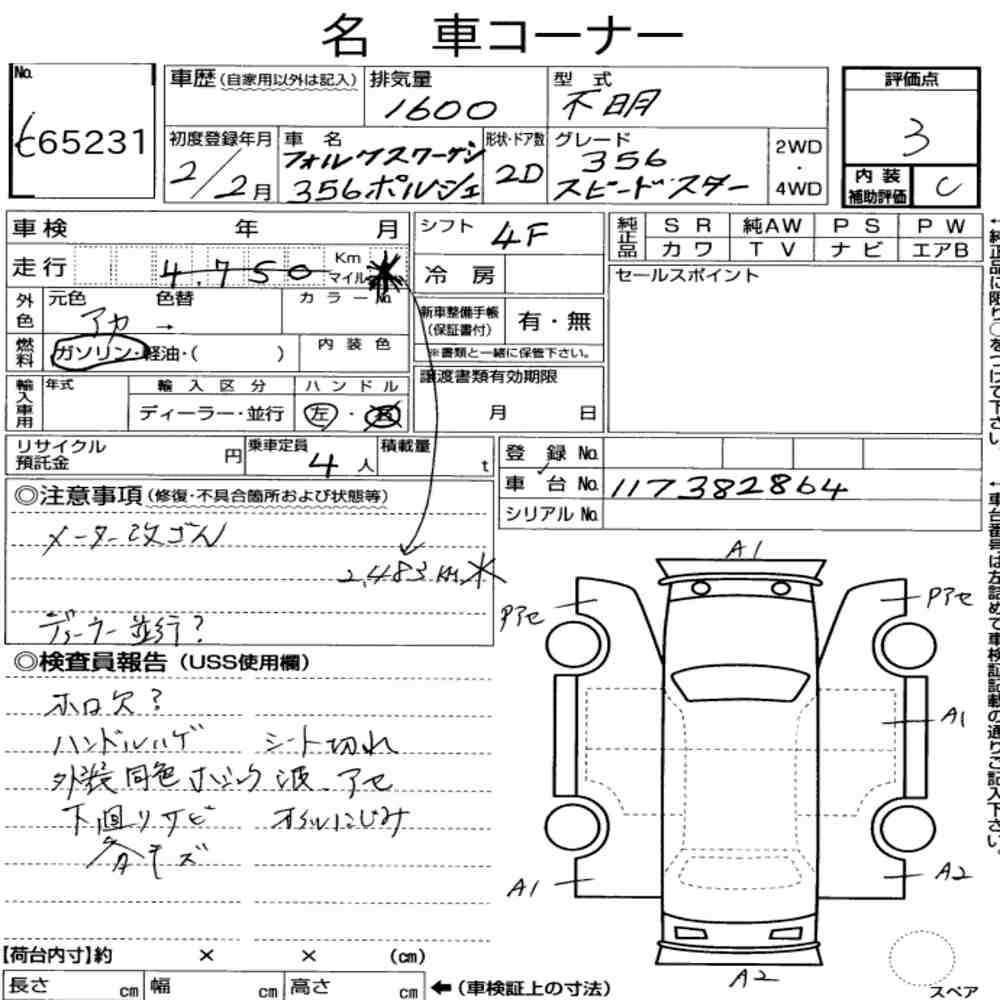 名 車コーナー
No. 65231
車歴(自家用以外は記入)
排気量 1600
型式 不明
評価点 3
初度登録年月 2/2月
車名 フォルクスワーゲン 356ポルシェ
形状・ドア数 2D
グレード 356 スピードスター
2WD・4WD
内装補助評価 C
車検 年 月
シフト 4F
純正品 SR 純AW PS PW
カワ TV ナビ エアB
走行 4,750 Km マイル
冷房
セールスポイント
外色 元色 アカ → 色替 カラーNo.
新車整備手帳(保証書付) 有・無
※書類と一緒に保管下さい。
燃料 ガソリン・軽油・( )
内装色
譲渡書類有効期限
月 日
輸入車用 年式 輸入区分 ハンドル
ディーラー・並行 左・右
リサイクル預託金 円
乗車定員 4人
積載量 t
登録No.
車台No. 117382864
シリアルNo.
◎注意事項(修復・不具合箇所および状態等)
メーター改ざん
2,483 KM ※
ディーラー並行?
◎検査員報告(USS使用欄)
ホロ欠?
ハンドルハゲ シート切れ
外装同色 波.アセ
下廻りサビ オイルにじみ
各キズ
A1
Pアセ
Pアセ
A1
A1
A2
A2
【荷台内寸】約 × × (cm)
長さ cm 幅 cm 高さ cm ←(車検証上の寸法)
スペア
←純正品に限り○をつけて下さい。
←車台番号は左詰めで車検証記載の通りご記入下さい。